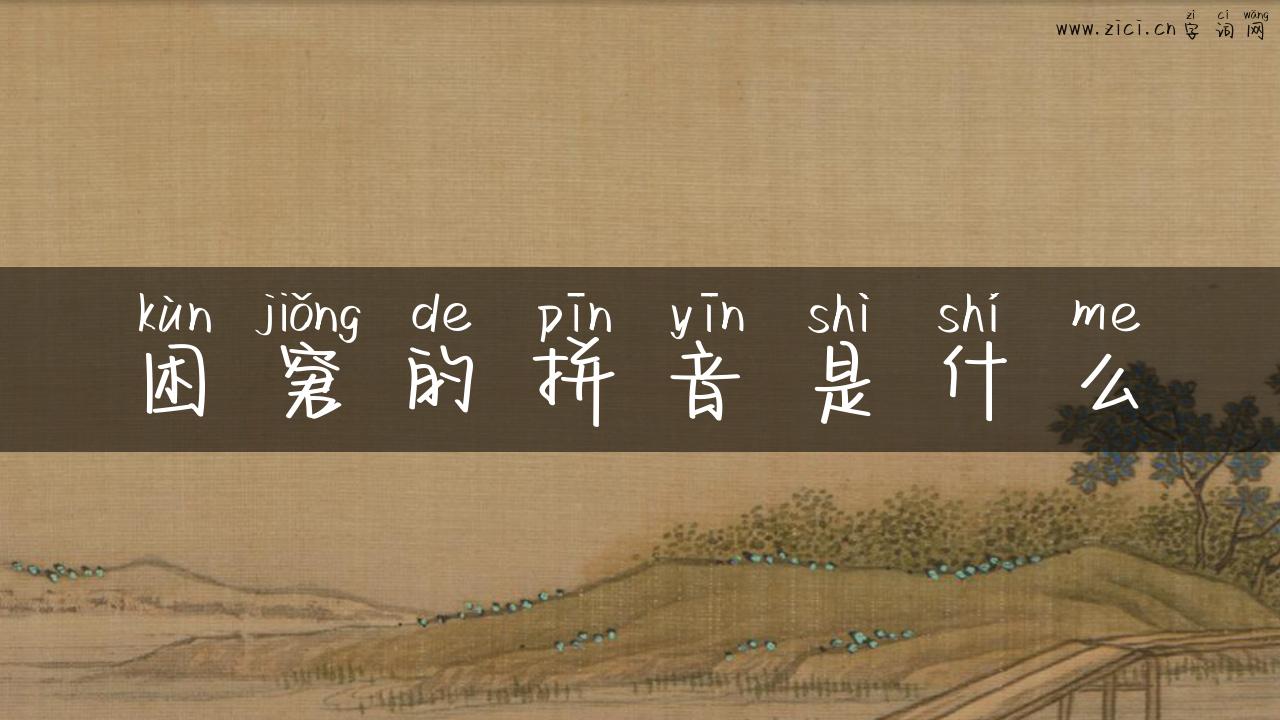 zì cí wǎng
www.zici.cn 字 词 网
kùn jiǒng de pīn yīn shì shí me
困 窘 的 拼 音 是 什 么